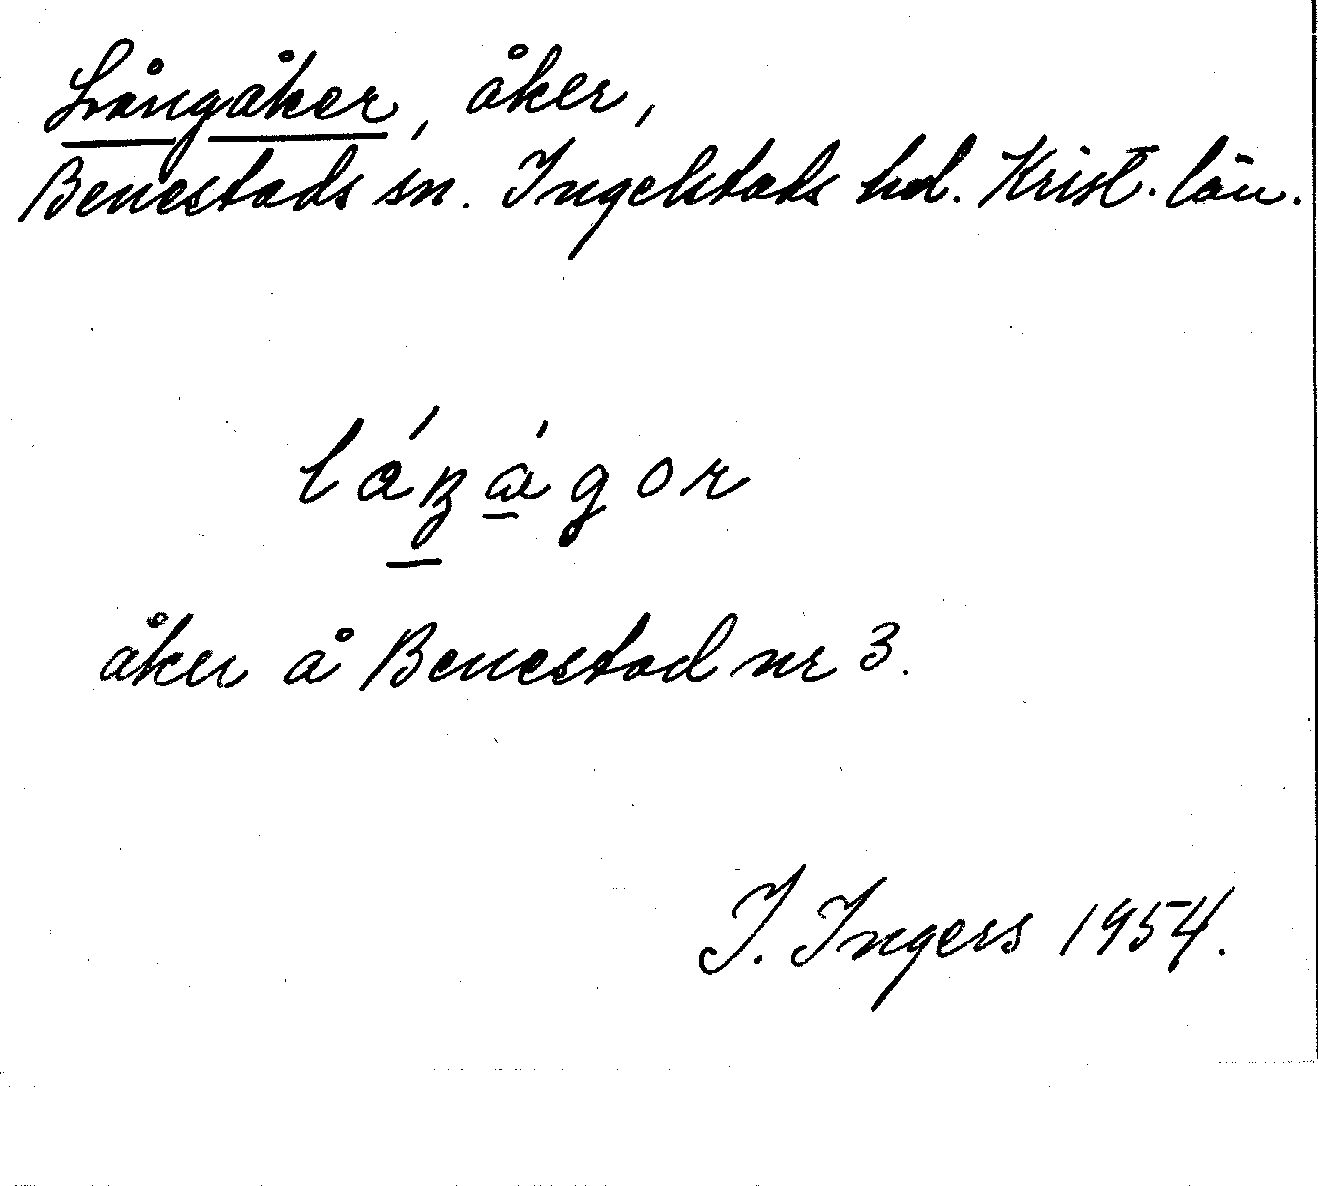 Långåker, åker,
Benestads sn. Ingelstads hd. Krist. län.
åker å Benestad nr 3.
I. Ingers 1954.